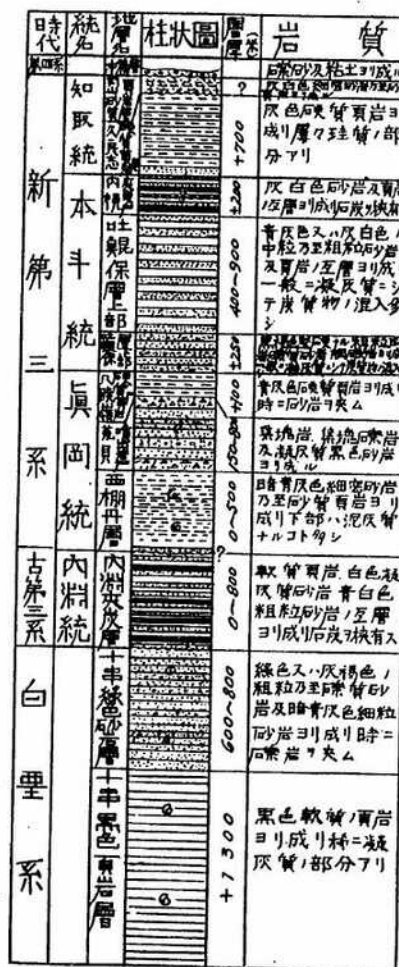 時代
統名
地層名
柱狀圖
層厚(米)
岩質
第四系
礫砂及粘土ヨリ成ル
新第三系
知取統
?
+700
灰色硬質頁岩ヨリ
成リ屢々珪質ノ部
分アリ
本斗統
内幌
±200
灰白色砂岩及頁岩
ノ互層ヨリ成リ石炭ヲ挾有
上部
400~900
青灰色又ハ灰白色ノ
中粒乃至粗粒砂岩
及頁岩ノ互層ヨリ成リ
一般ニ凝灰質ニシ
テ炭質物ノ混入多
シ
±220
眞岡統
+100
青灰色硬質頁岩ヨリ成リ
時ニ砂岩ヲ夾ム
集塊岩、集塊礫岩
及凝灰質黒色砂岩
ヨリ成ル
西棚丹層
0~500
暗青灰色細密砂岩
乃至砂質頁岩ヨリ
成リ下部ハ泥灰質
ナルコト多シ
?
古第三系
内淵統
内淵夾炭層
0~800
軟質頁岩、白色凝
灰質砂岩、青白色
粗粒砂岩ノ互層
ヨリ成リ石炭ヲ挾有ス
白堊系
十串綠色砂岩層
600~800
綠色又ハ灰褐色ノ
粗粒乃至礫質砂
岩及暗青灰色細粒
砂岩ヨリ成リ時ニ
礫岩ヲ夾ム
十串黒色頁岩層
+1300
黒色軟質ノ頁岩
ヨリ成リ稀ニ凝
灰質ノ部分アリ